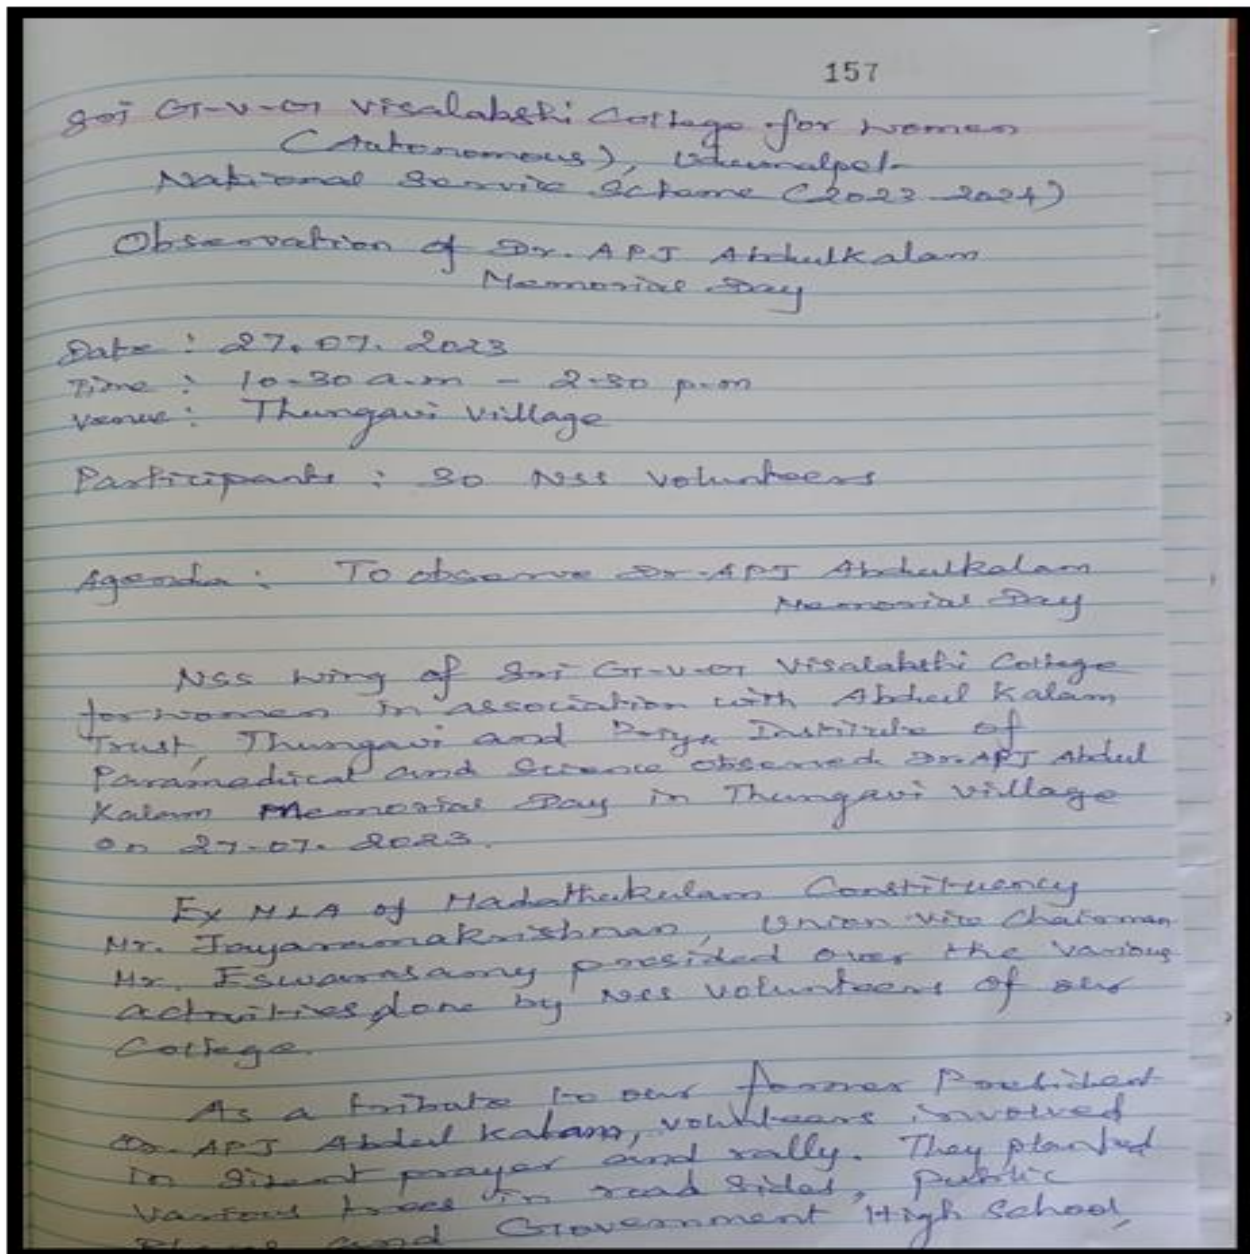 157
Sri G-V-G Visalakshi College for women
(Autonomous), Udumalpet
National Service Scheme (2023-2024)
Observation of Dr. APJ Abdulkalam
Memorial Day
Date : 27.07.2023
Time : 10-30 a.m - 2-30 p.m
Venue : Thungavi Village
Participants : 30 NSS Volunteers
Agenda : To observe Dr. APJ Abdulkalam
Memorial Day
NSS wing of Sri G-V-G Visalakshi College
for women in association with Abdul Kalam
Trust, Thungavi and Priya Institute of
Paramedical and Science observed Dr. APJ Abdul
Kalam Memorial Day in Thungavi Village
on 27-07-2023.
Ex MLA of Madathukulam Constituency
Mr. Jayaramakrishnan, Union Vice Chairman
Mr. Eswarasamy presided over the various
activities done by NSS Volunteers of our
College.
As a tribute to our former President
Dr. APJ Abdul Kalam, volunteers involved
in silent prayer and rally. They planted
various trees in road sides, Public
Places and Government High School,